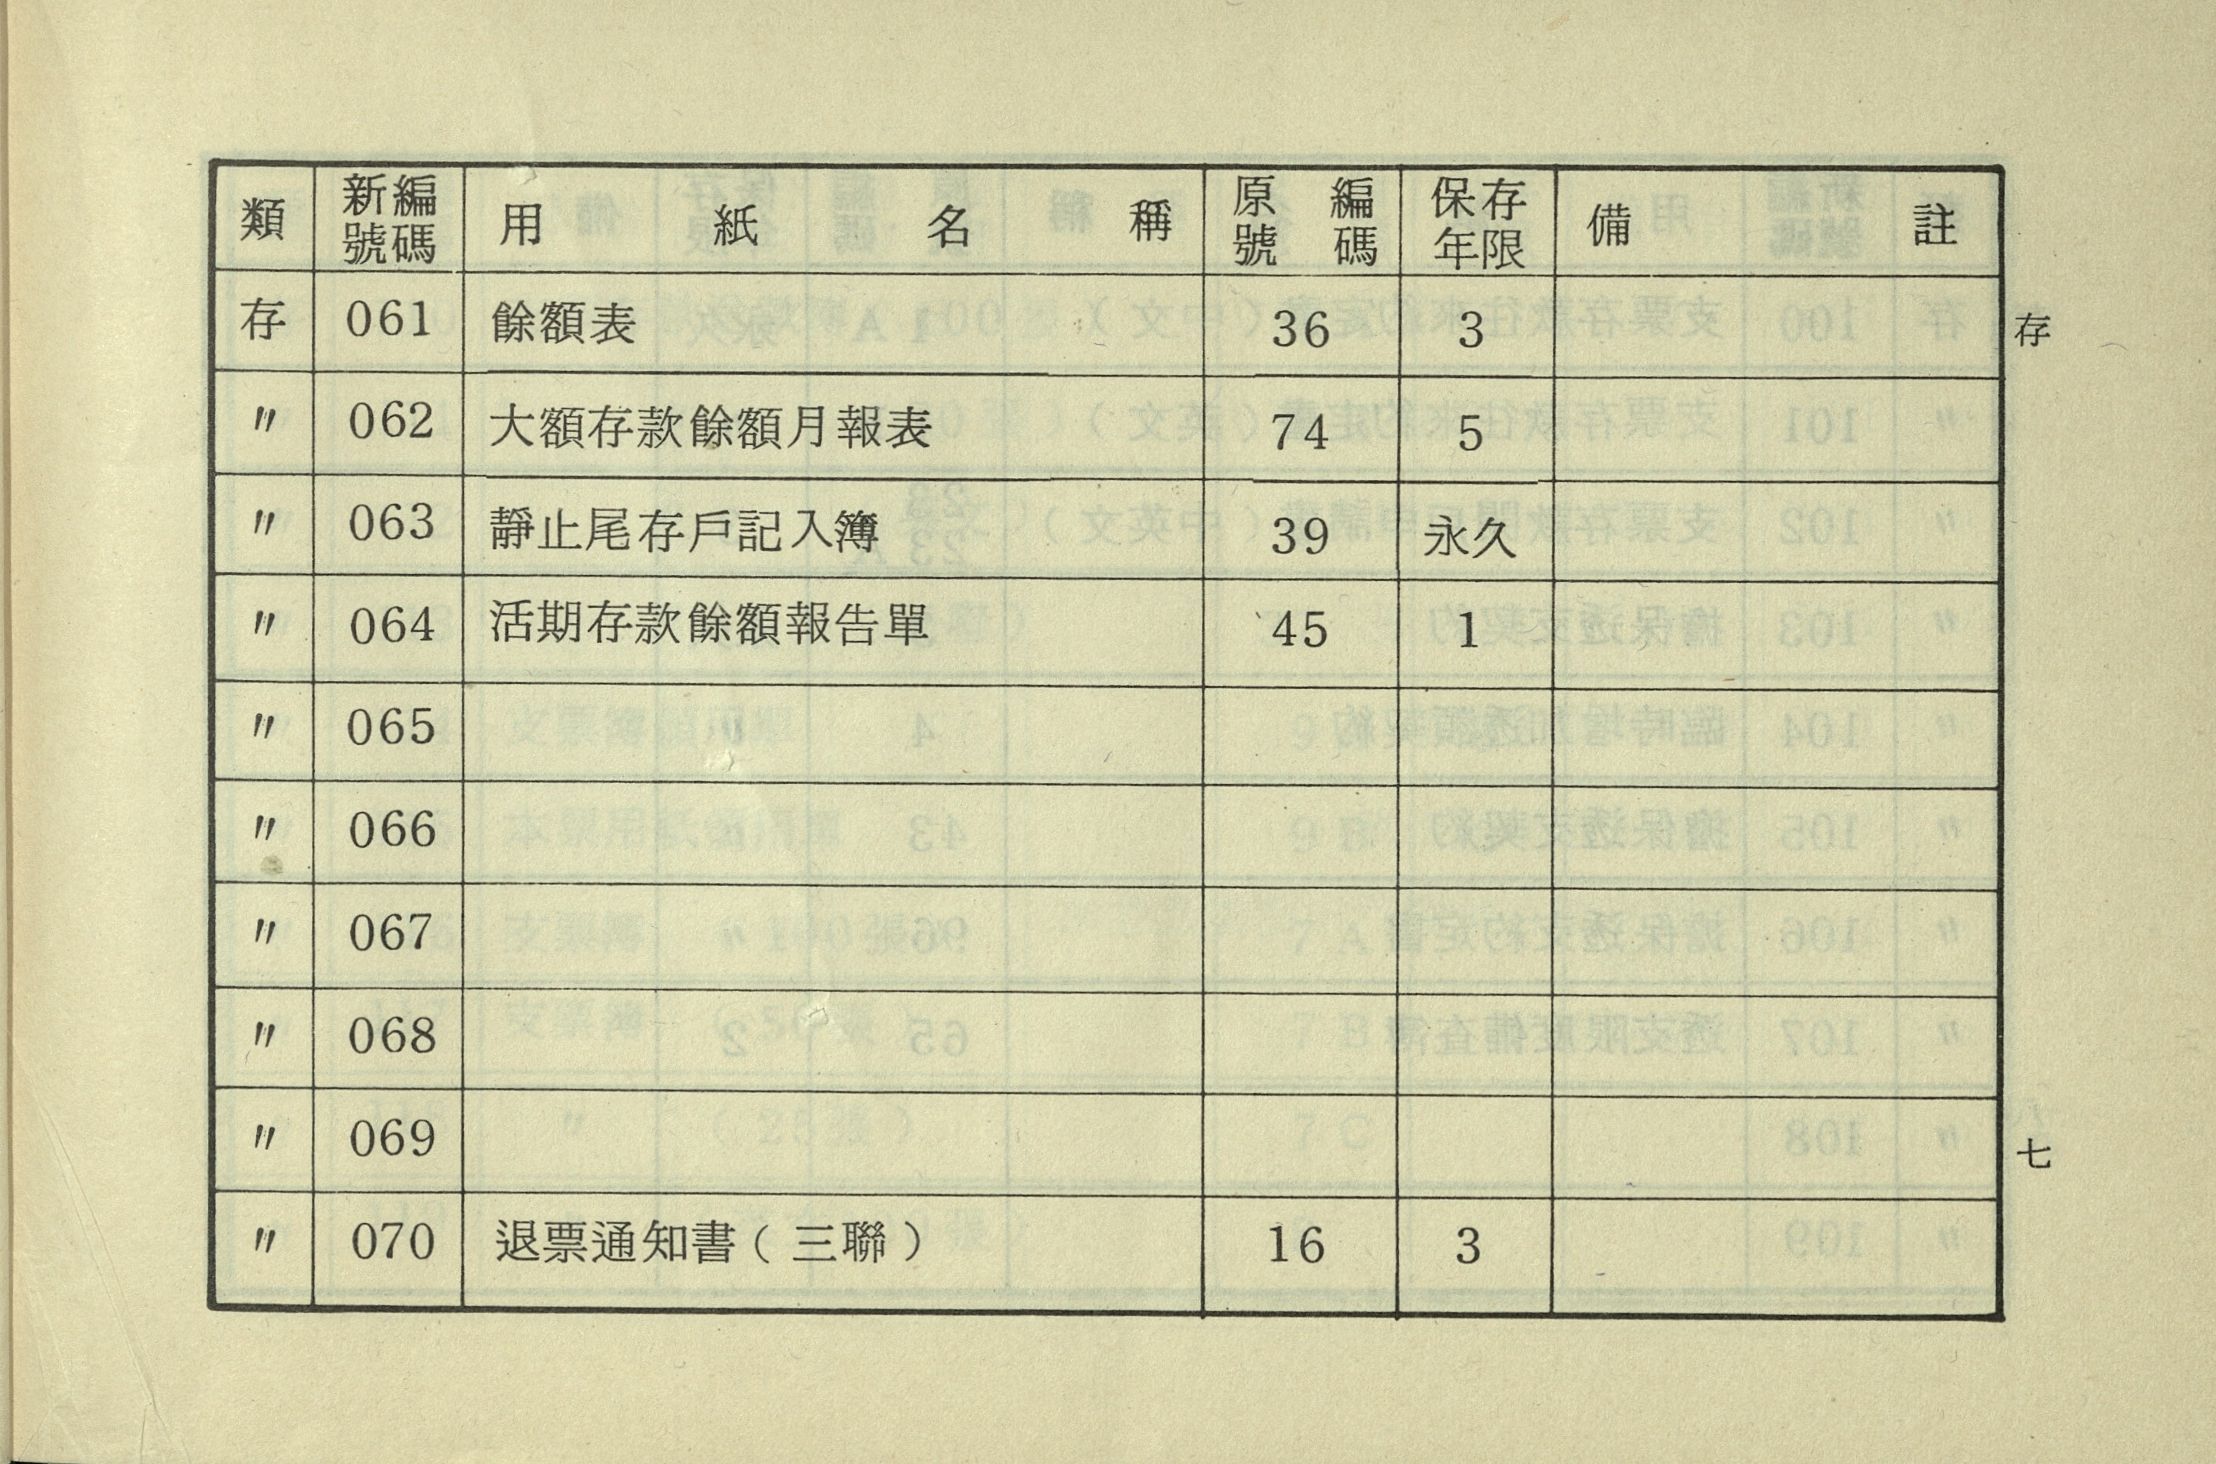 類 新編號碼 用紙名稱 原編號碼 保存年限 備註
存 061 餘額表 36 3
〃 062 大額存款餘額月報表 74 5
〃 063 靜止尾存戶記入簿 39 永久
〃 064 活期存款餘額報告單 45 1
〃 065
〃 066
〃 067
〃 068
〃 069
〃 070 退票通知書(三聯) 16 3
存
七